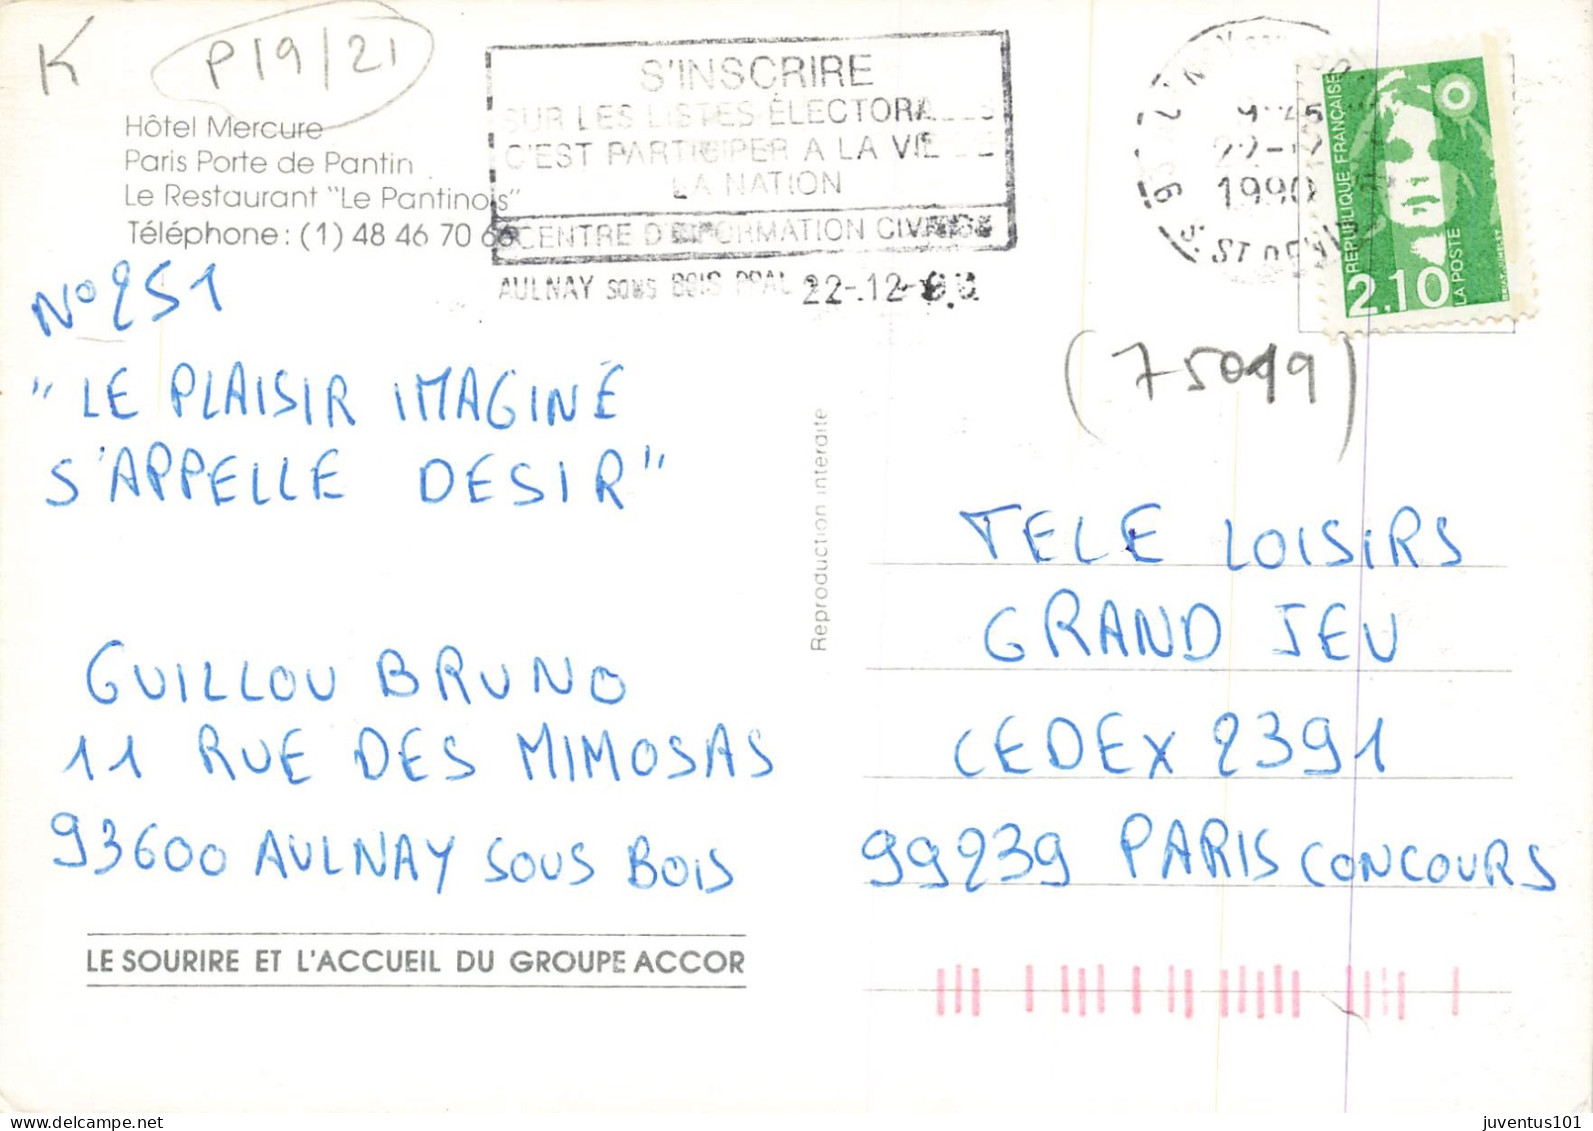 K
P19/21
Hôtel Mercure
Paris Porte de Pantin
Le Restaurant "Le Pantinois"
Téléphone : (1) 48 46 70 66
S'INSCRIRE
SUR LES LISTES ÉLECTORALES
C'EST PARTICIPER A LA VIE DE
LA NATION
CENTRE D'INFORMATION CIVIQUE
AULNAY sous BOIS PPAL 22-.12-90
22-12
1990
ST DENIS
REPUBLIQUE FRANÇAISE
LA POSTE
2,10
(75019)
N° 251
"LE PLAISIR IMAGINÉ
S'APPELLE DESIR"
GUILLOU BRUNO
11 RUE DES MIMOSAS
93600 AULNAY SOUS BOIS
LE SOURIRE ET L'ACCUEIL DU GROUPE ACCOR
Reproduction interdite
TELE LOISIRS
GRAND JEU
CEDEX 2391
99239 PARIS CONCOURS
juventus101